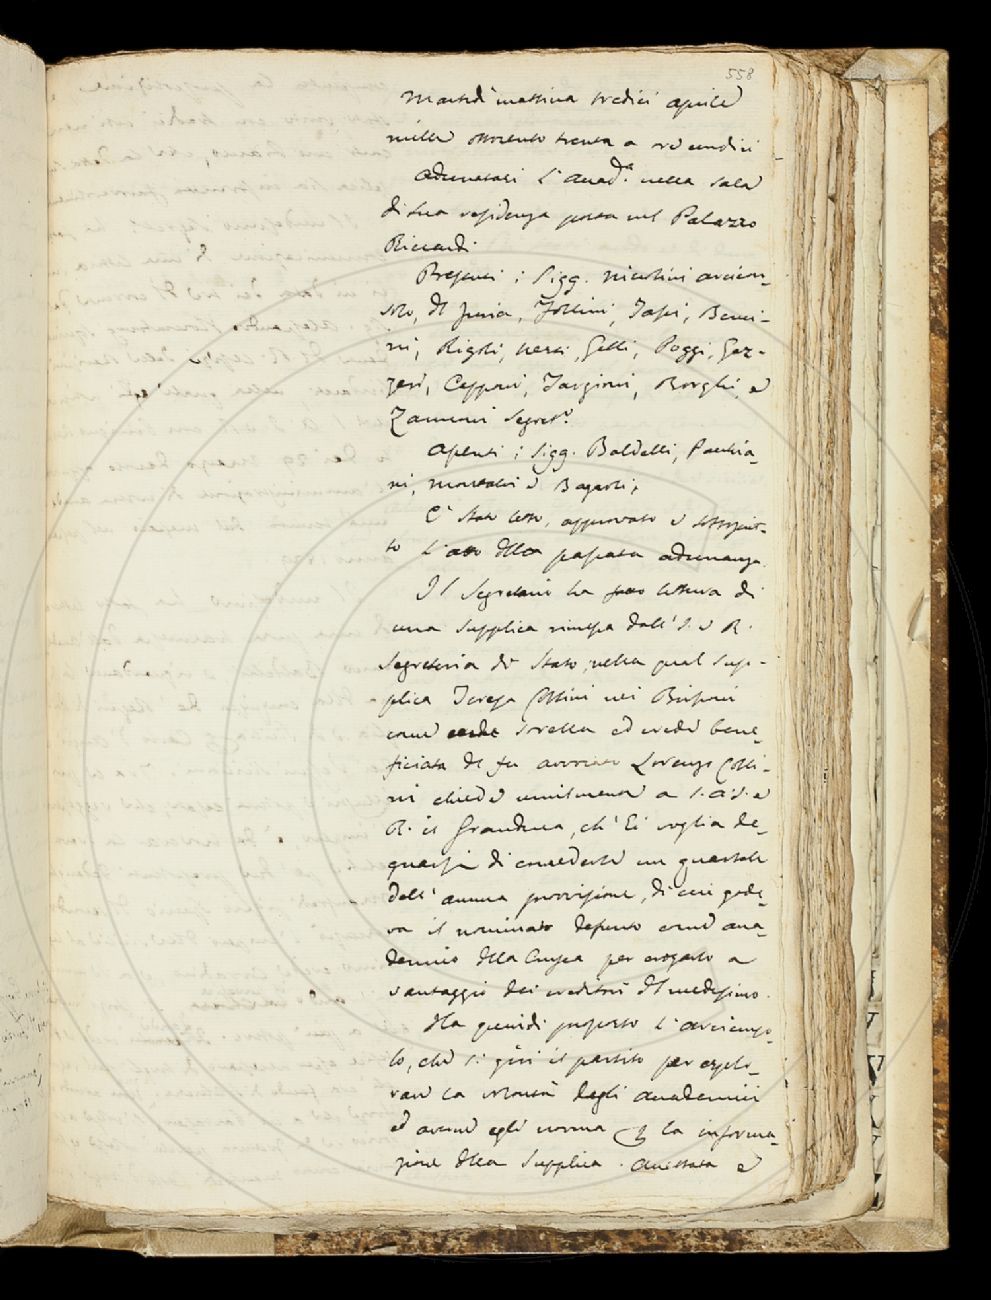 558
Martedì mattina tredici aprile
mille ottocento trenta a ore undici
Adunatasi l'Accad.a nella sala
di sua residenza posta nel Palazzo
Riccardi
Presenti i Sigg. Niccolini arcicon-
solo, Del Furia, Follini, Tassi, Benci-
ni, Rigoli, Nesti, Gelli, Poggi, Gaz-
zeri, Capponi, Targioni, Borghi, e
Zannoni Segret.o
Assenti i Sigg. Baldelli, Pacchia-
ni, Montalvi e Bagnoli;
È stato letto, approvato e sottoscrit-
to l'atto della passata adunanza.
Il Segretario ha fatto lettura di
una supplica rimessa dall'I. e R.
Segreteria di Stato, nella qual sup-
plica Teresa Collini nei Brissoni
come erede sorella ed erede bene-
ficiata del fu avvocato Lorenzo Colli-
ni chiede umilmente a S.A.I. e
R. il Granduca, ch'Ei voglia de-
gnarsi di concederle un quartale
dell'annua provvisione, di cui gode-
va il nominato defunto come acca-
demico della Crusca per erogarlo a
vantaggio dei creditori del medesimo.
Ha quindi proposto l'arciconso-
lo, che si giri il partito per esplo-
rare la volontà degli accademici
ed averne egli norma per la informa-
zione della supplica. Accettata e